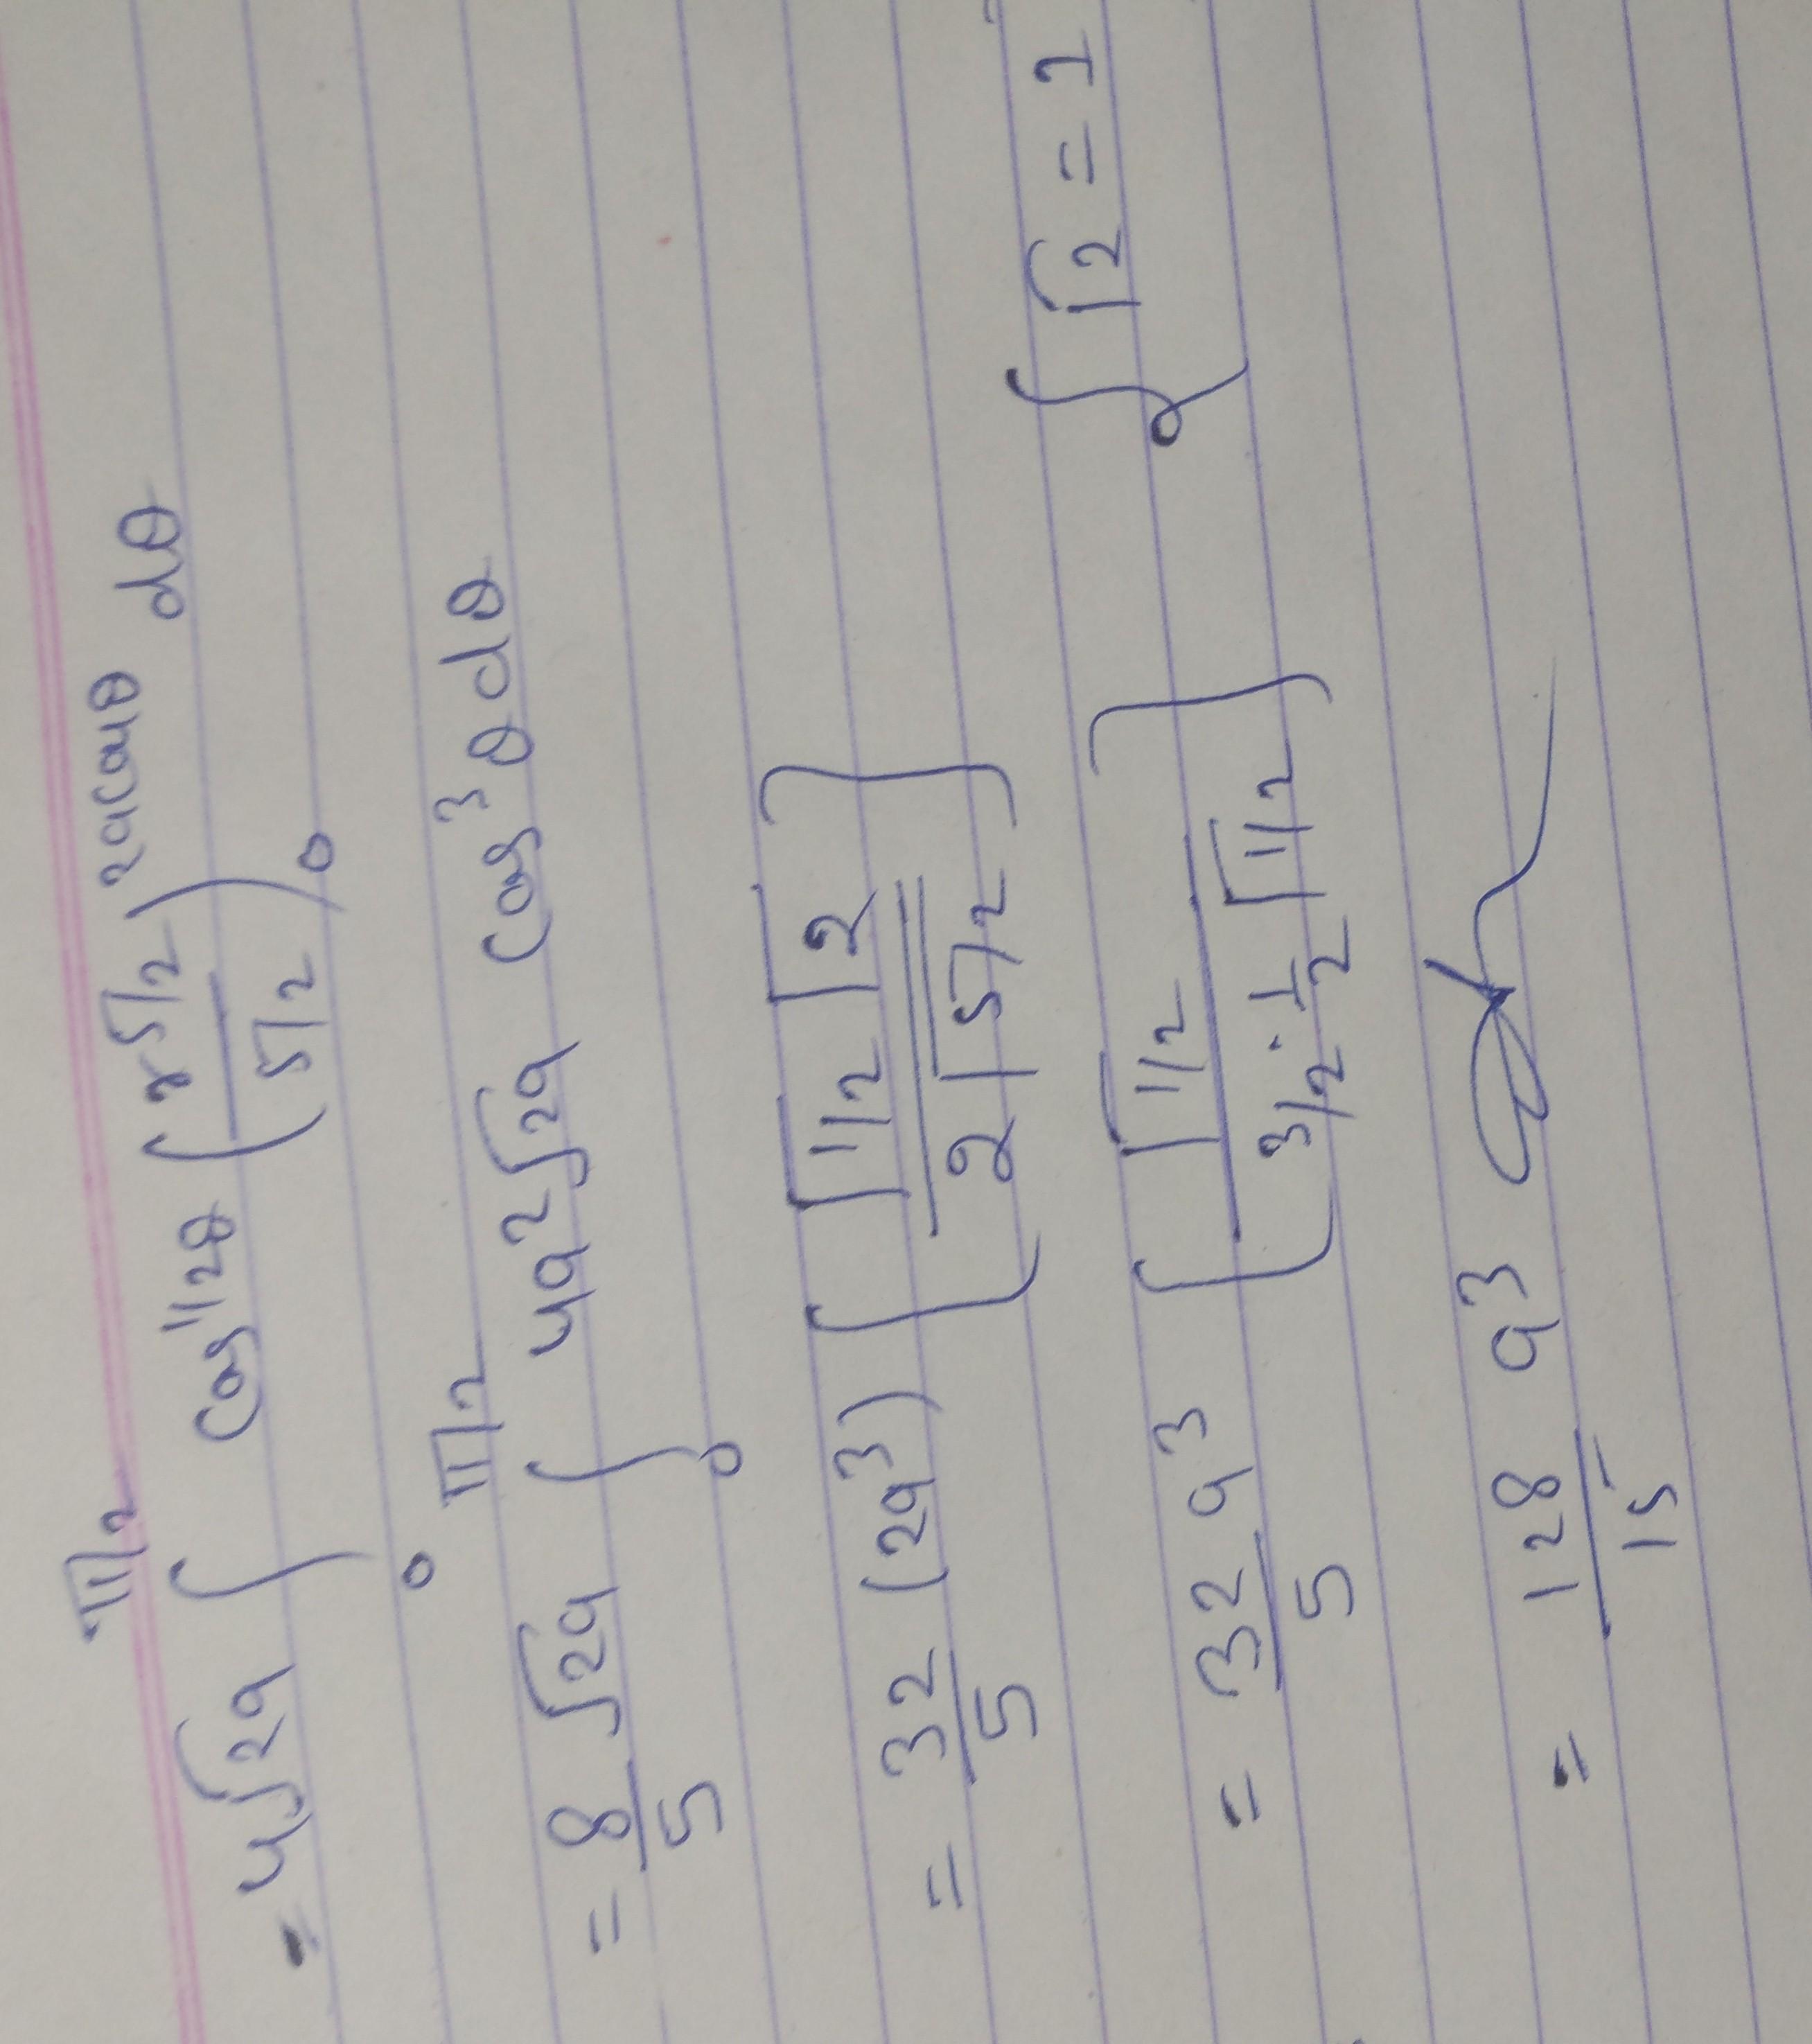 = 4√2a ∫₀^{π/2} cos^{1/2}θ (r^{5/2} / 5/2)₀^{2acosθ} dθ
= 8/5 √2a ∫₀^{π/2} 4a²√2a cos³θ dθ
= 32/5 (2a³) [Γ1/2 Γ2 / 2Γ5/2]
= 32/5 a³ [Γ1/2 / 3/2 · 1/2 Γ1/2] { Γ2 = 1
= 128/15 a³